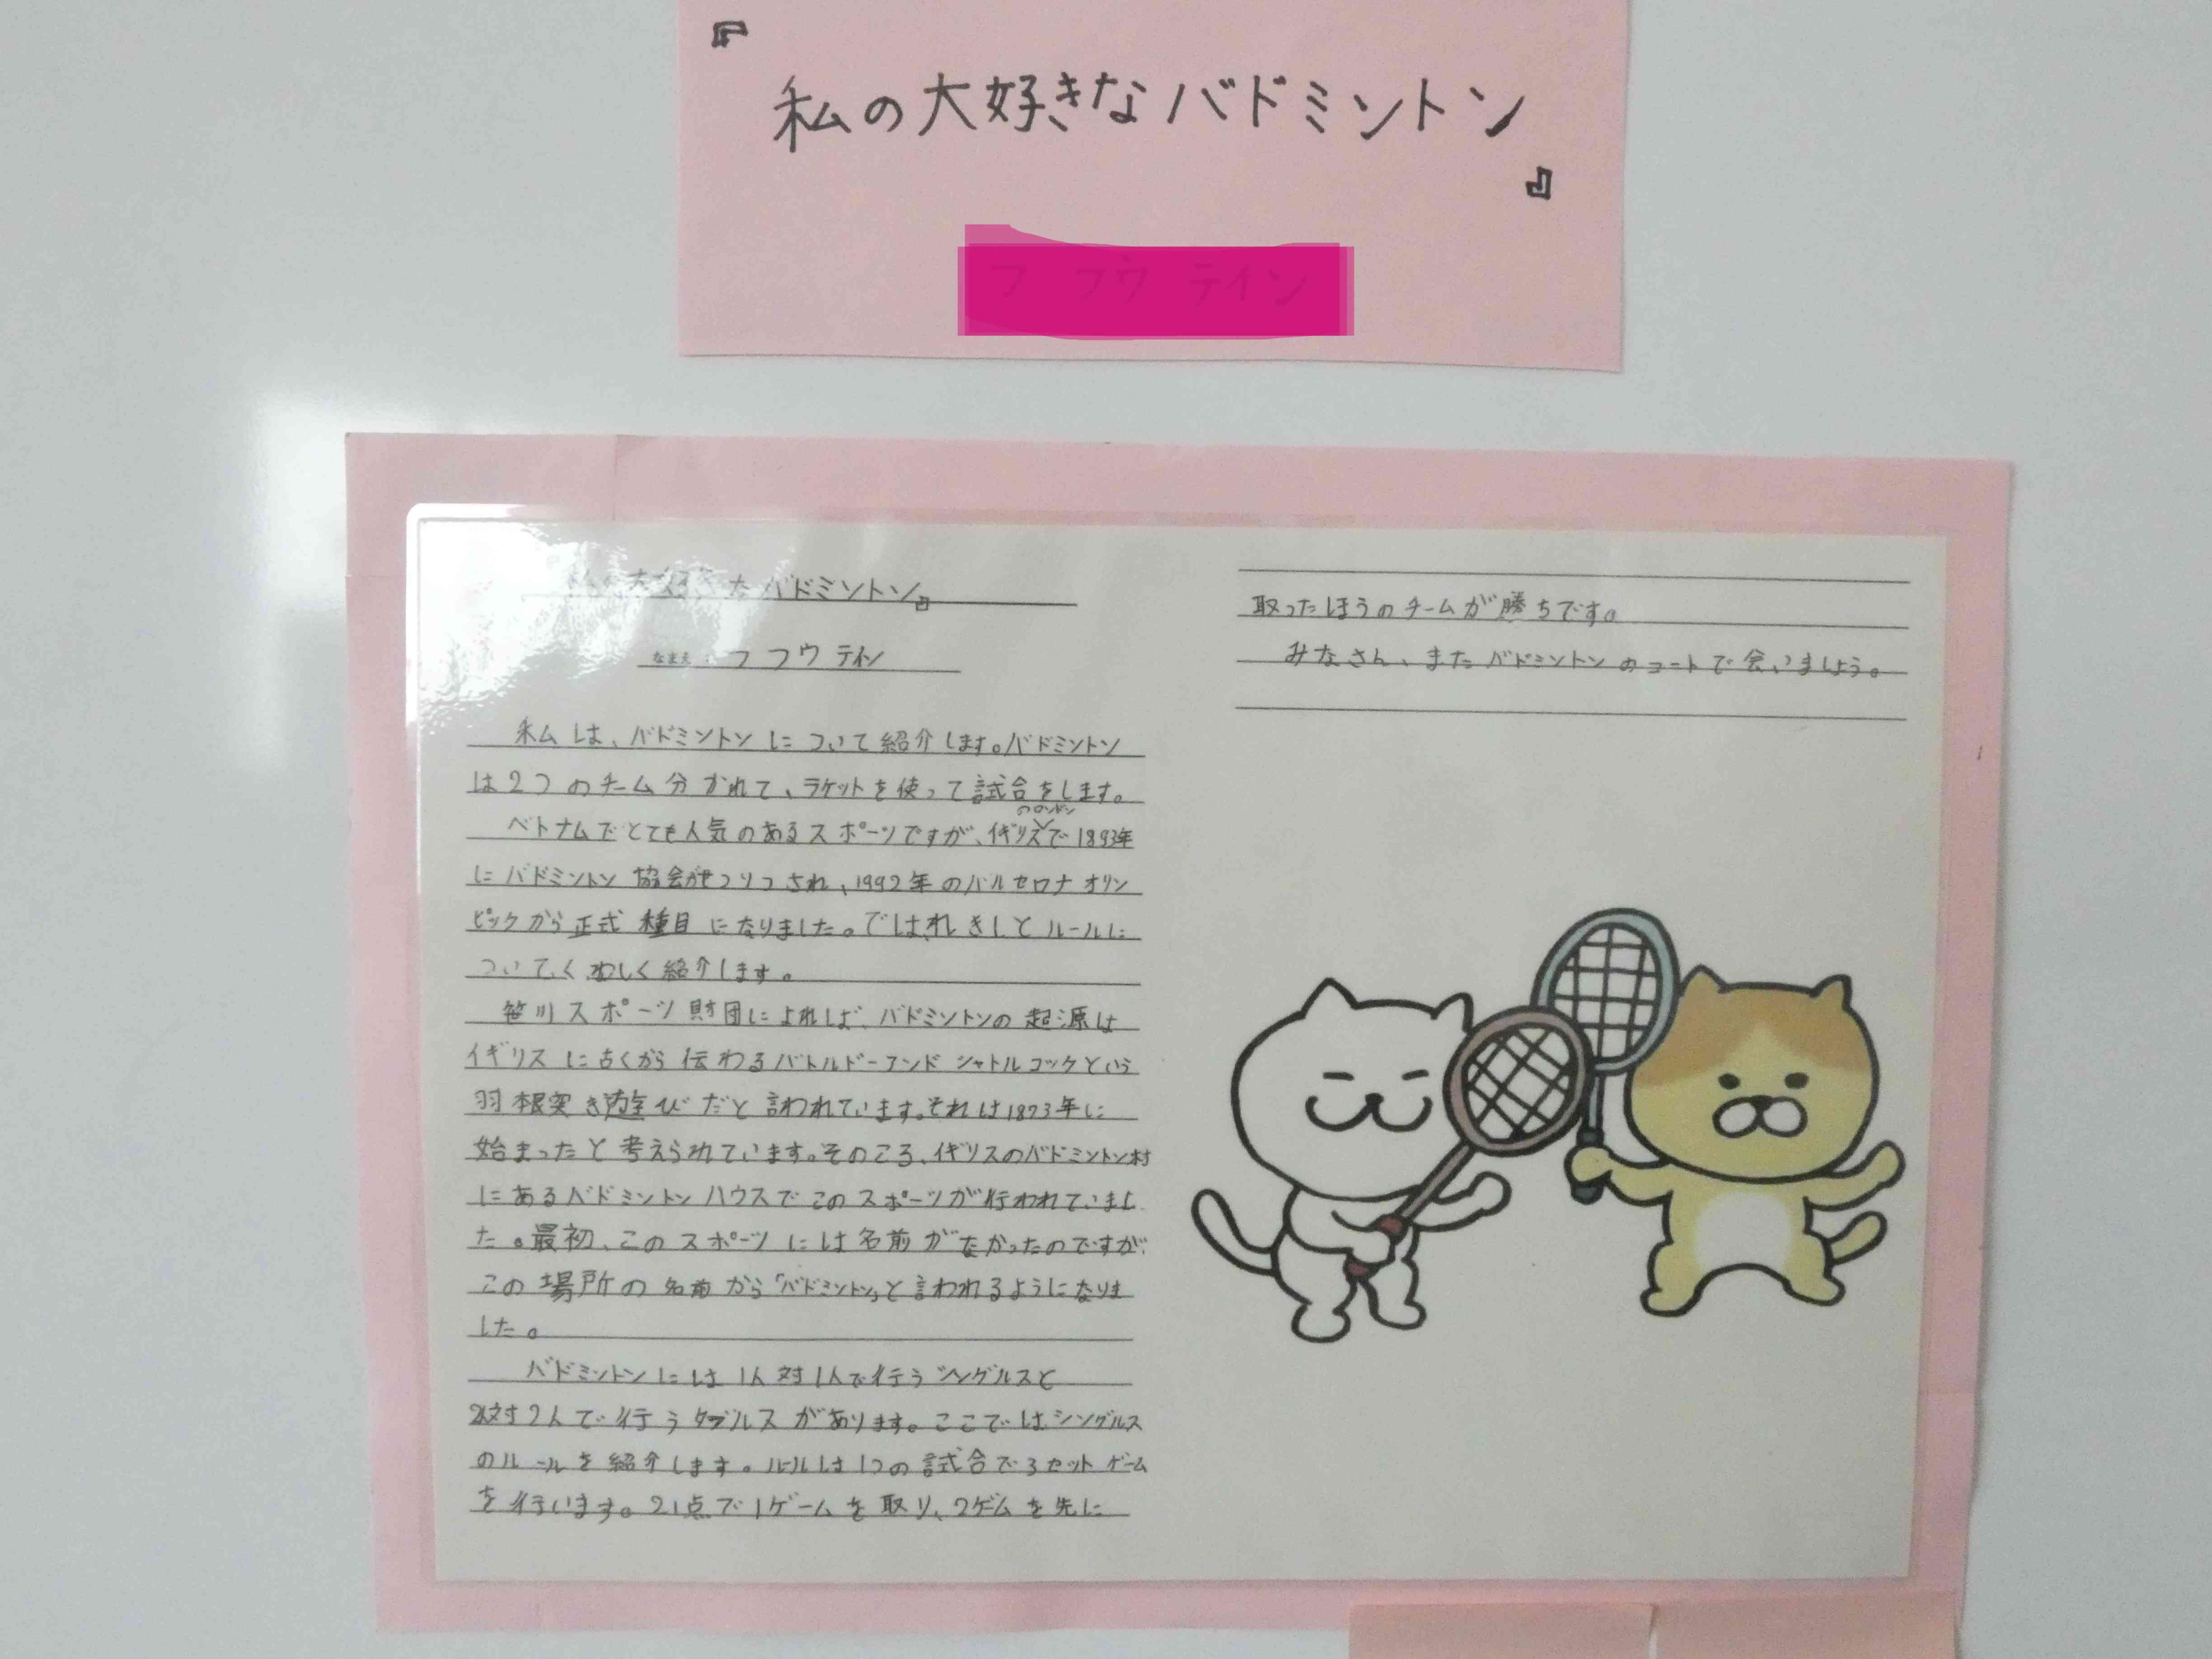 『
私の大好きなバドミントン
』
私の大好きなバドミントン』
なまえ フ フウ テイン
私は、バドミントンについて紹介します。バドミントン
は2つのチーム分かれて、ラケットを使って試合をします。
のロンドン
ベトナムでとても人気のあるスポーツですが、イギリスで1893年
にバドミントン協会がせつりつされ、1992年のバルセロナオリン
ピックから正式種目になりました。では、れきしとルールに
ついてくわしく紹介します。
笹川スポーツ財団によれば、バドミントンの起源は
イギリスに古くから伝わるバトルドーアンドシャトルコックという
羽根突き遊びだと言われています。それは1873年に
始まったと考えられています。そのころ、イギリスのバドミントン村
にあるバドミントンハウスでこのスポーツが行われていまし
た。最初、このスポーツには名前がなかったのですが、
この場所の名前から「バドミントン」と言われるようになりま
した。
バドミントンには1人対1人で行うシングルスと
2人対2人で行うダブルスがあります。ここではシングルス
のルールを紹介します。ルールは1つの試合で3セットゲーム
を行います。21点で1ゲームを取り、2ゲームを先に
取ったほうのチームが勝ちです。
みなさん、またバドミントンのコートで会いましょう。